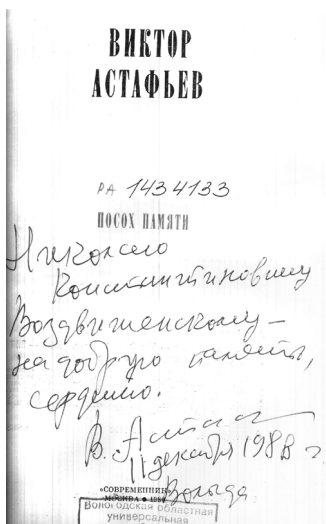 ВИКТОР
АСТАФЬЕВ
РА 1434133
ПОСОХ ПАМЯТИ
Николаю
Константиновичу
Воздвиженскому –
на добрую память,
сердечно.
В. Астаф
11 декабря 1988 г
Вологда
«СОВРЕМЕННИК»
МОСКВА • 1980
Вологодская областная
универсальная